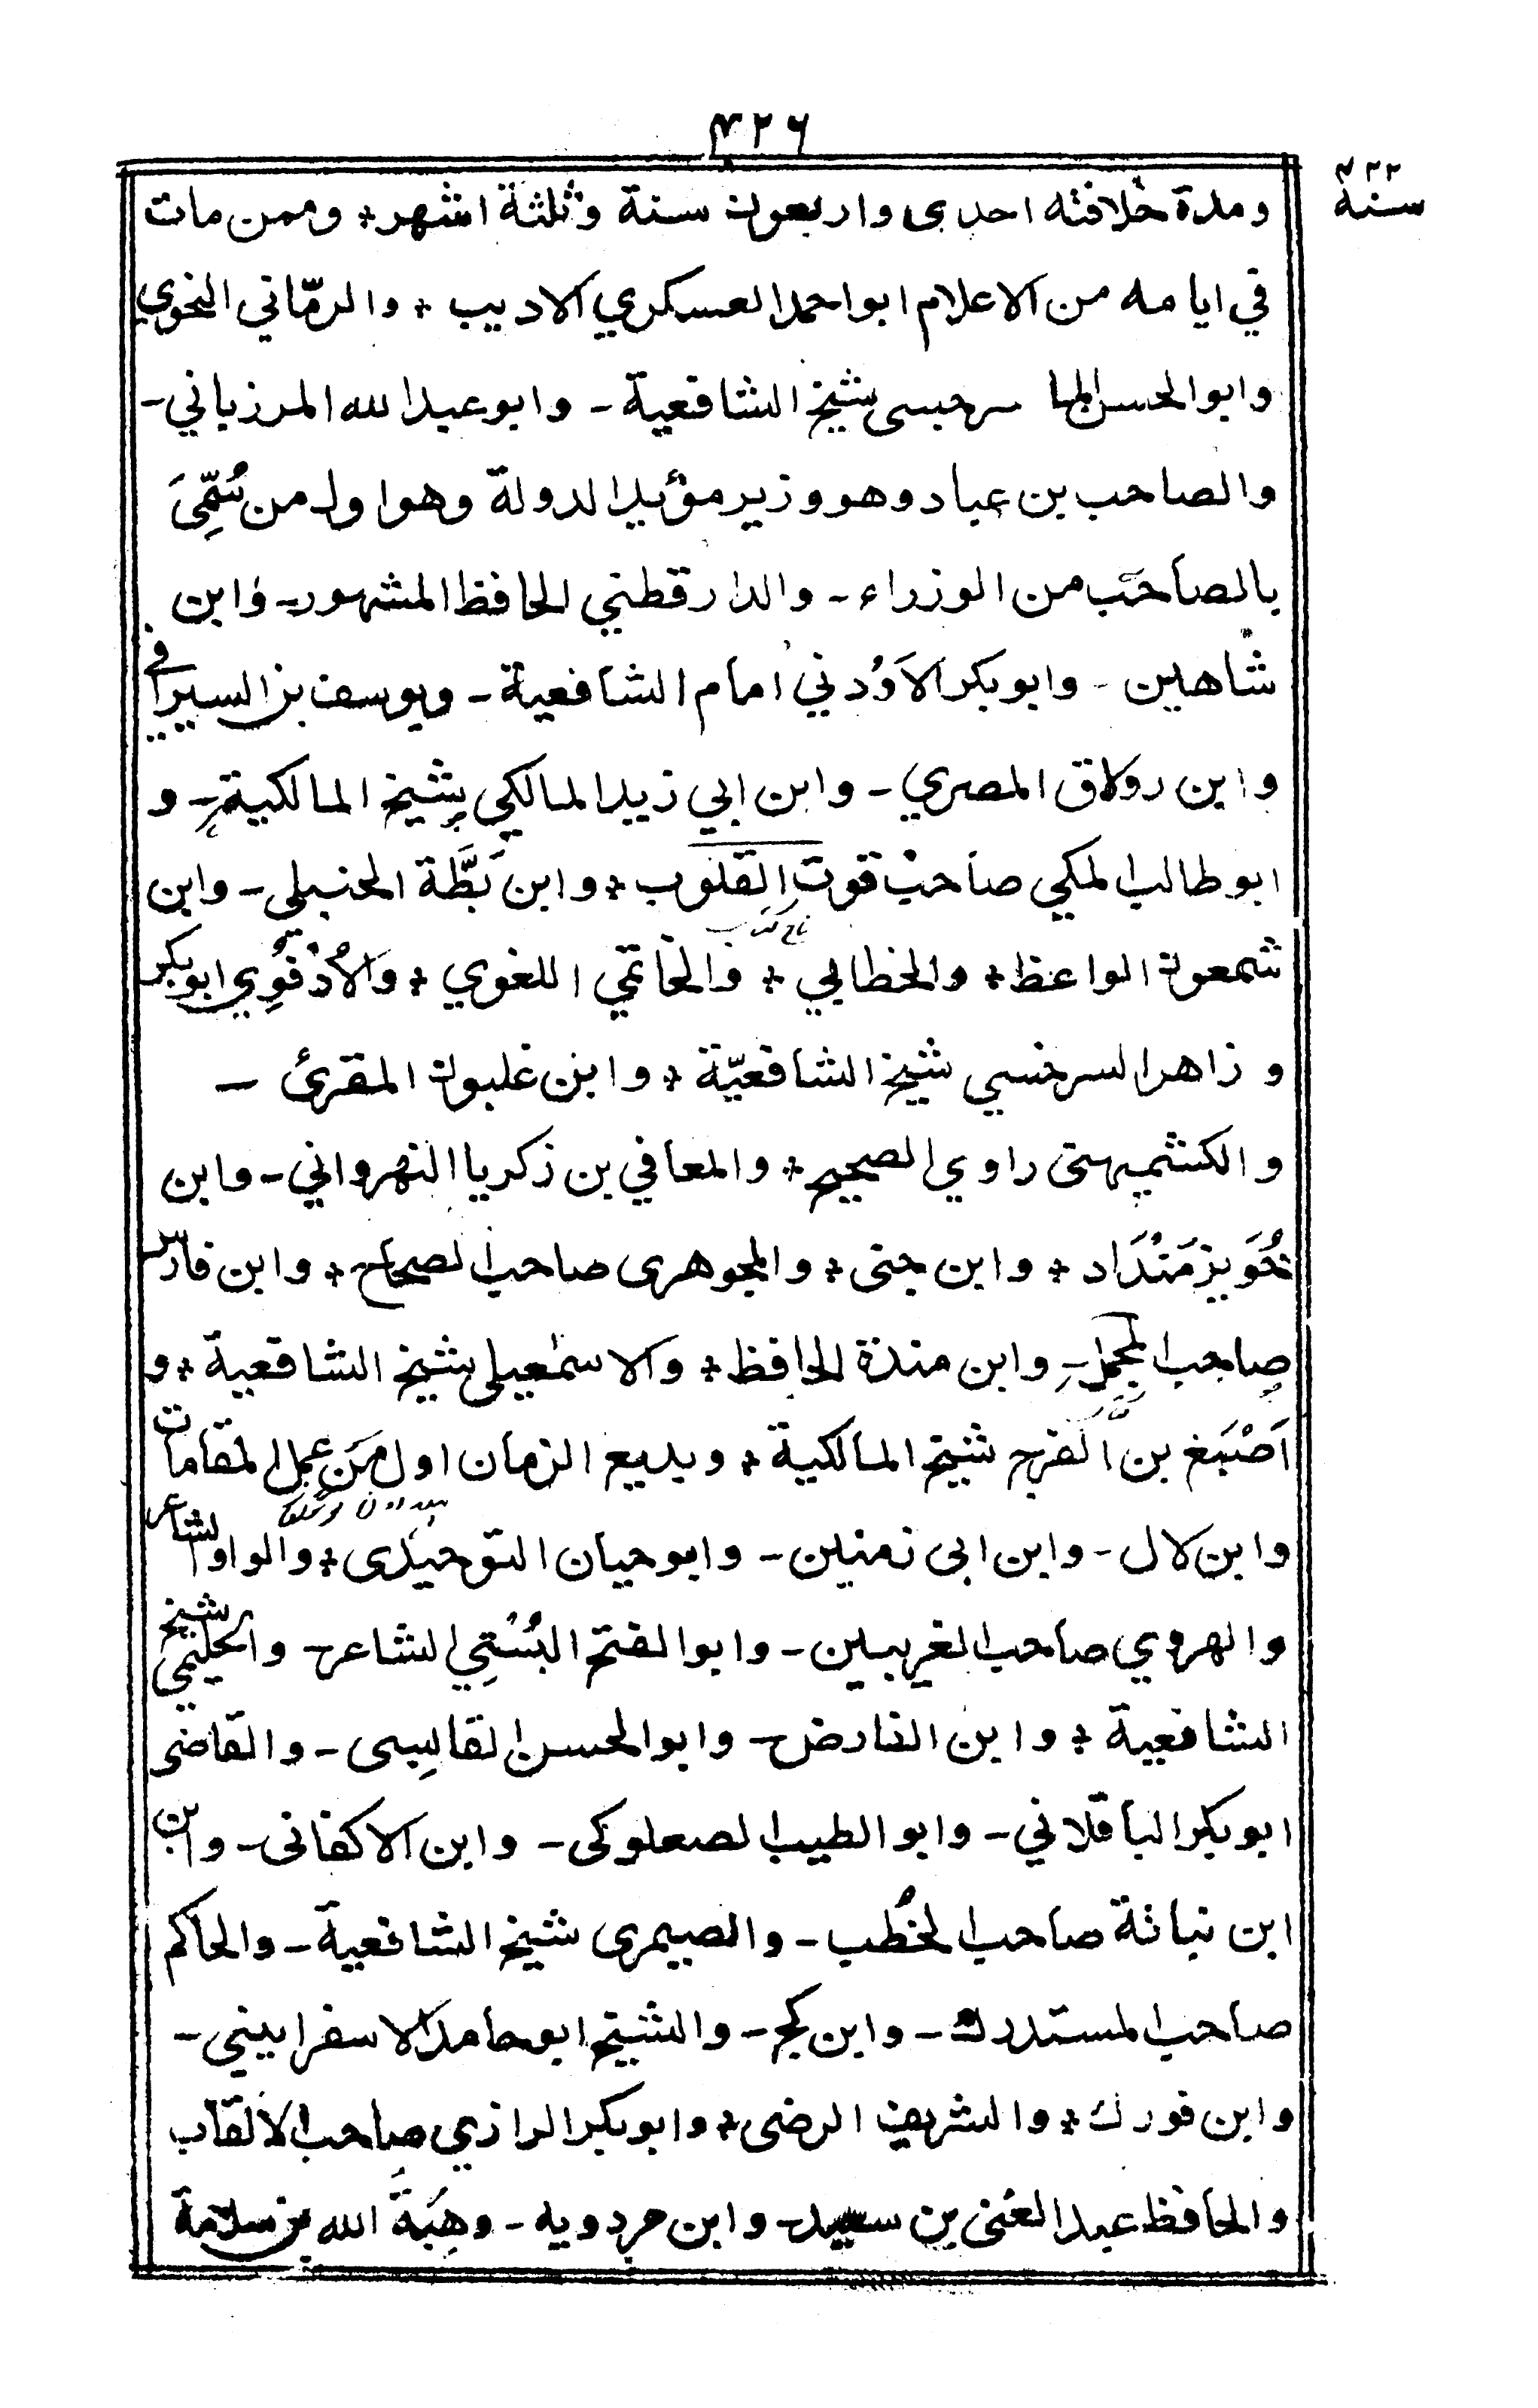 ۴۲۶
سنة ۴۲۲
ومدة خلافته احدى واربعون سنة وثلثة اشهر * وممن مات
في ايامه من الاعلام ابو احمد العسكري الاديب * والرمّاني النحوي
وابو الحسن الما سرجسى شيخ الشافعية - وابو عبد الله المرزباني -
والصاحب بن عباد وهو وزير مؤيد الدولة وهو اول من سُمِّيَ
بالصاحب من الوزراء - والدارقطني الحافظ المشهور - وابن
شاهين - وابو بكر الاَوُدني امام الشافعية - ويوسف بن السيرافي
وابن زولاق المصري - وابن ابي زيد المالكي شيخ المالكية - و
ابو طالب المكي صاحب قوت القلوب * وابن بَطَّة الحنبلي - وابن
نام كتاب
شمعون الواعظ * والخطابي * والخاتمي اللغوي * والاُدْفُوِي ابو بكر
و زاهر السرخسي شيخ الشافعيّة * وابن غلبون المقرئ -
والكشميهنى راوي الصحيح * والمعافي بن زكريا النهرواني - وابن
خُوَيْزمَنْدَاد * وابن جنى * والجوهرى صاحب الصحاح * وابن فارس
صاحب المجمل - وابن مندة الحافظ * والاسمٰعيلى شيخ الشافعية * و
اَصْبَغ بن الفرج شيخ المالكية * وبديع الزمان اول مَن عمل المقامات
وابن لال - وابن ابى زمنين - وابو حيان التوحيدى * والواوا الشاعر
والهروي صاحب الغريبين - وابو الفتح البُسْتِي الشاعر - والحليمي شيخ
الشافعية * وابن الفارض - وابو الحسن القابسى - والقاضى
ابو بكر الباقلاني - وابو الطيب الصعلوكى - وابن الاكفانى - وابن
ابن نباتة صاحب الخُطَب - والصيمرى شيخ الشافعية - والحاكم
صاحب المستدرك - وابن كج - والشيخ ابو حامد الاسفرايني -
وابن فورك * والشريف الرضى * وابو بكر الرازي صاحب الالقاب
والحافظ عبد الغنى بن سعيد - وابن مردويه - وهِبَة الله بن سلامة